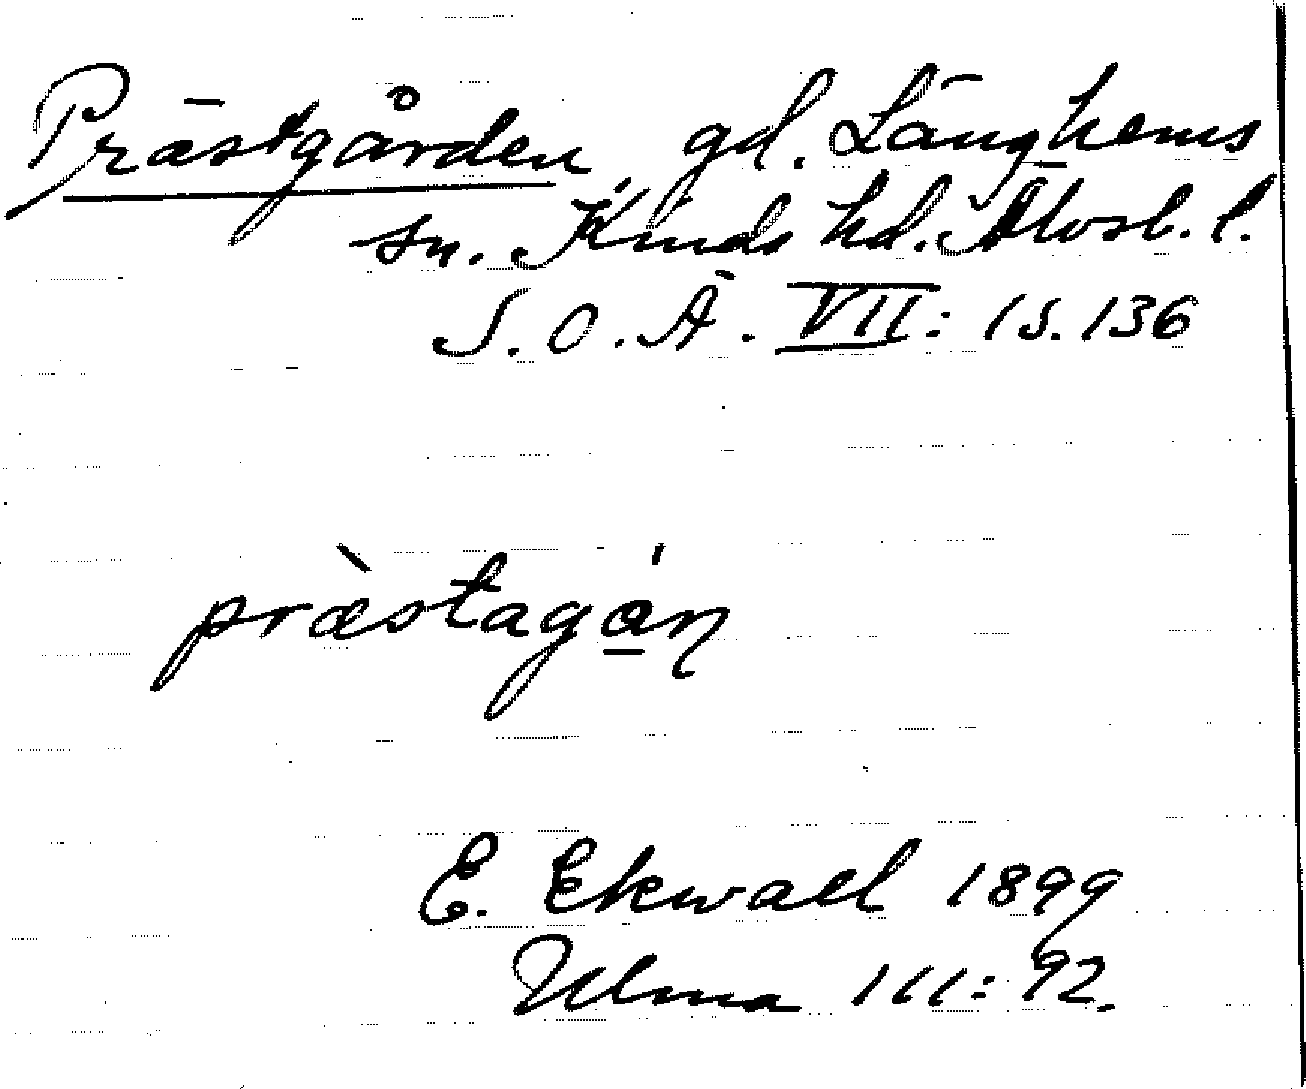 Prästgården gd. Länghems
sn. Kinds hd. Älvsb. l.
S. O. Ä. VII: 1 s. 136
præ̀stagá̱n
E. Ekwall 1899
Ulma 111: 92.